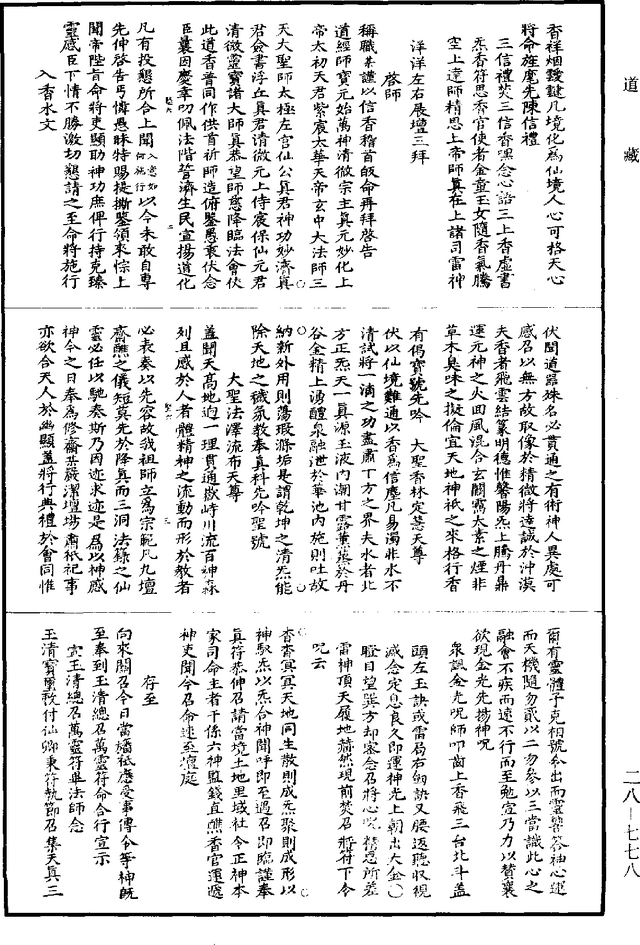 道藏
香祥烟靉靆凡境化為仙境人心可格天心
將命旌麾先陳信禮
三信禮焚三信香嘿念心詣三上香虛書
炁香符思香官使者金童玉女隨香氣騰
空上達師精思上帝師真在上諸司雷神
洋洋左右展壇三拜
啓師
稱職某謹以信香稽首皈命再拜啓告
道經師寶元始萬神清微宗主真元妙化上
帝太初天君紫宸太華天帝玄中大法師三
天大聖師太極左宮仙公真君神功妙濟真
君僉書浮丘真君清微元上侍宸保仙元君
清微靈寶諸大師真恭望師慈降臨法會伏
此道香普同作供首祈師造俯鑒愚衷伏念
臣曩因慶幸叨佩法階誓濟生民宣揚道化
凡有投懇所合上聞入意如何施行以今未敢自專
先伸啓告丐憐愚昧特賜提撕鑒領來悰上
聞帝陛旨命將吏顯助神功庶俾行持克臻
靈感臣下情不勝激切懇請之至命將施行
入香水文
伏聞道噐殊名必貫通之有術神人異處可
感召以無方故取像於精微將達誠於沖漠
夫香者飛雲結篆明德惟馨陽炁上騰丹鼎
運元神之火回風混合玄關霱太素之煙非
草木臭味之擬倫宜天地神祇之來格行香
有偈寶號先吟　大聖香林定慧天尊
伏以仙境難通以香為信塵凡易濁非水不
清試將一滴之功盡肅十方之界夫水者北
方正炁天一真源玉液內潮甘露薰蒸於丹
谷金精上湧醴泉融泄於華池內施則吐故
納新外用則蕩瑕滌垢是謂乾坤之清炁能
除天地之穢氛敷奉真科先吟聖號
大聖法澤流布天尊
蓋聞天高地迥一理貫通嶽峙川流百神森
列且感於人者體精神之流動而形於教者
必表奏以先容故我祖師立為宗範凡九壇
齋醮之儀短莫先於降真而三洞法籙之仙
靈必任以馳奏斯乃因迹求迹是為以神感
神今之日奉為修齋某嚴潔壇場肅祇祀事
亦欲合天人於幽顯蓋將行典禮於會同惟
爾有靈體予克相號令出而雲響荅神心運
而天機隨勿貳以二勿參以三當識此心之
融會不疾而速不行而至勉宣乃力以贊襄
欲現金光先揚神呪
衆諷金光呪師叩齒上香飛三台北斗蓋
頭左玉訣或雷局右劒訣叉腰返聽收視
滅念定息良久即運神光上朝出大金〇
瞪目望巽方却宻念召將心呪精思所差
雷神頂天履地赫然現前焚召將符下令
呪云
杳杳冥冥天地同生散則成炁聚則成形以
神馭炁以炁合神聞呼即至遇召即臨謹奉
真符恭伸召請當境土地里域社令正神本
家司命主者干係六神監錢直醮香官運遞
神吏聞今召命速至壇庭
存至
向來關召今日當壇祇應受事傳令等神旣
至奉到玉清總召萬靈符命合行宣示
宣玉清總召萬靈符畢法師念
玉清寶璽敕付仙卿秉符執節召集天真三
二八—七七八